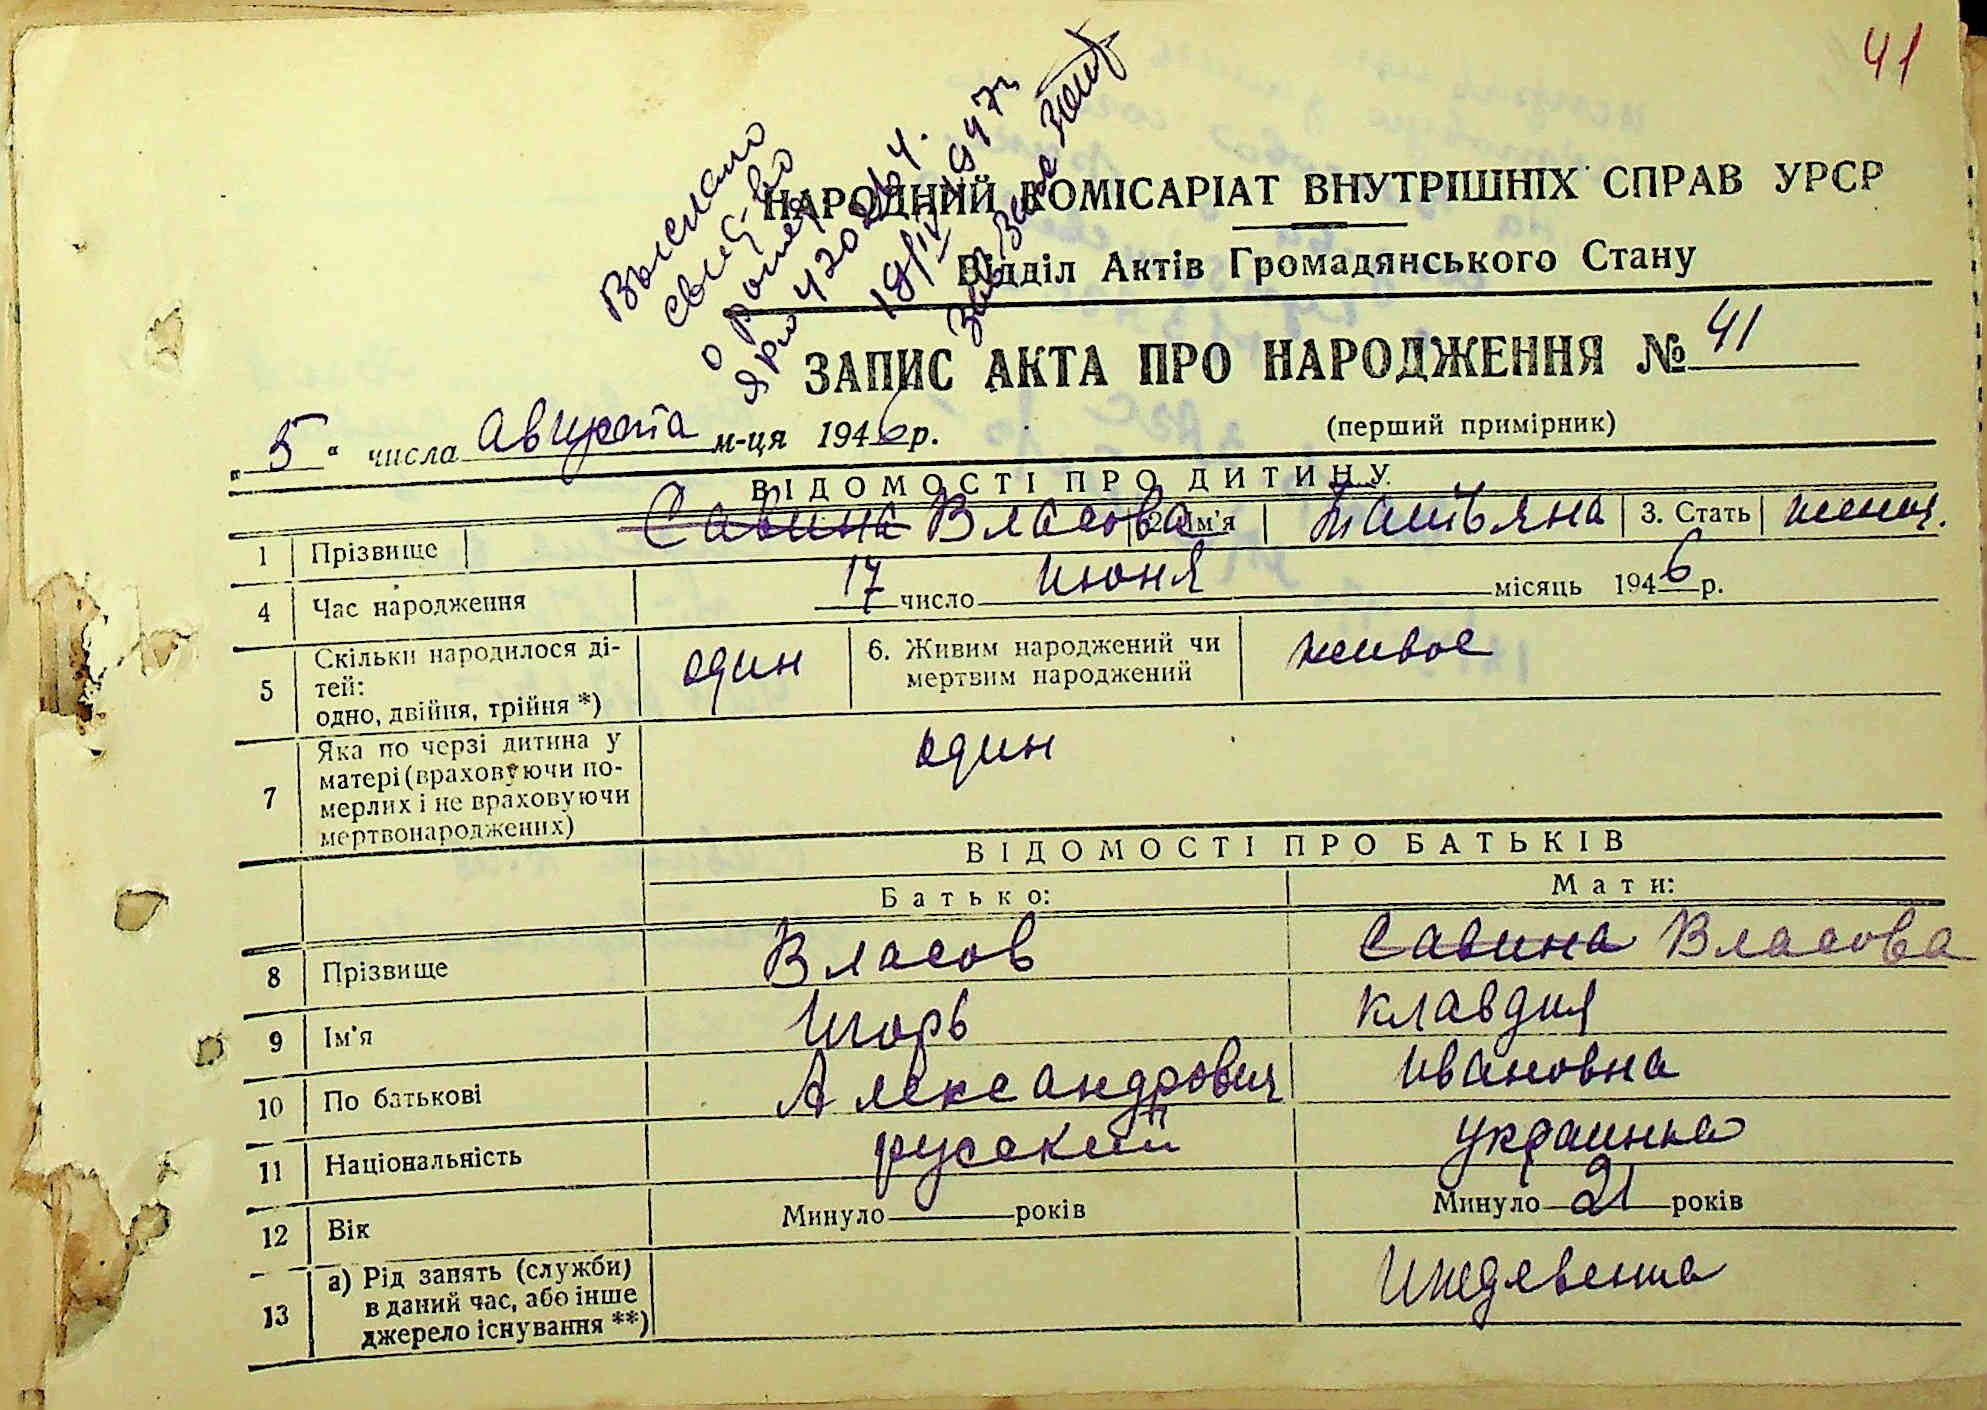 41
Выслано
свид-во
о рожд.
ЯРЛ 420264.
19/IV 1947г.
НАРОДНИЙ КОМІСАРІАТ ВНУТРІШНІХ СПРАВ УРСР
Відділ Актів Громадянського Стану
ЗАПИС АКТА ПРО НАРОДЖЕННЯ № 41
(перший примірник)
„ 5 “ числа Августа м-ця 1946 р.
ВІДОМОСТІ ПРО ДИТИНУ
1 Прізвище Савина Власова 2. Ім'я Татьяна 3. Стать женщ.
4 Час народження 17 число Июня місяць 1946 р.
5 Скільки народилося ді-
тей:
одно, двійня, трійня *) один 6. Живим народжений чи
мертвим народжений живое
7 Яка по черзі дитина у
матері (враховуючи по-
мерлих і не враховуючи
мертвонароджених) один
ВІДОМОСТІ ПРО БАТЬКІВ
Батько: Мати:
8 Прізвище Власов Савина Власова
9 Ім'я Игорь Клавдия
10 По батькові Александрович Ивановна
11 Національність русский украинка
12 Вік Минуло ____ років Минуло 21 років
13 а) Рід занять (служби)
в даний час, або інше
джерело існування **) Иждевенка